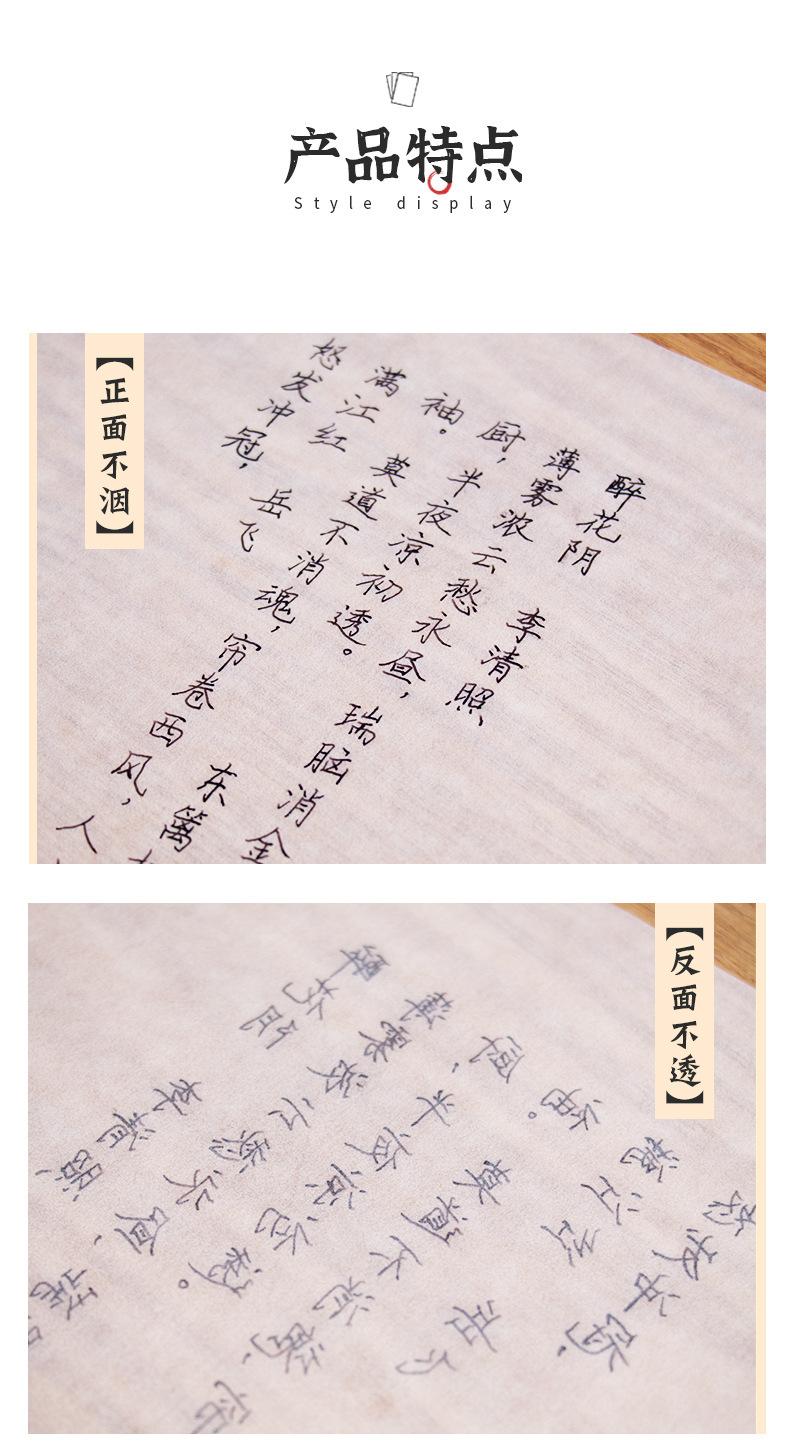 产品特点
Style display
【正面不洇】
醉花阴 李清照
薄雾浓云愁永昼，瑞脑消金
厨，半夜凉初透。东篱
袖。莫道不消魂，帘卷西风，人
满江红 岳飞
怒发冲冠，
【反面不透】